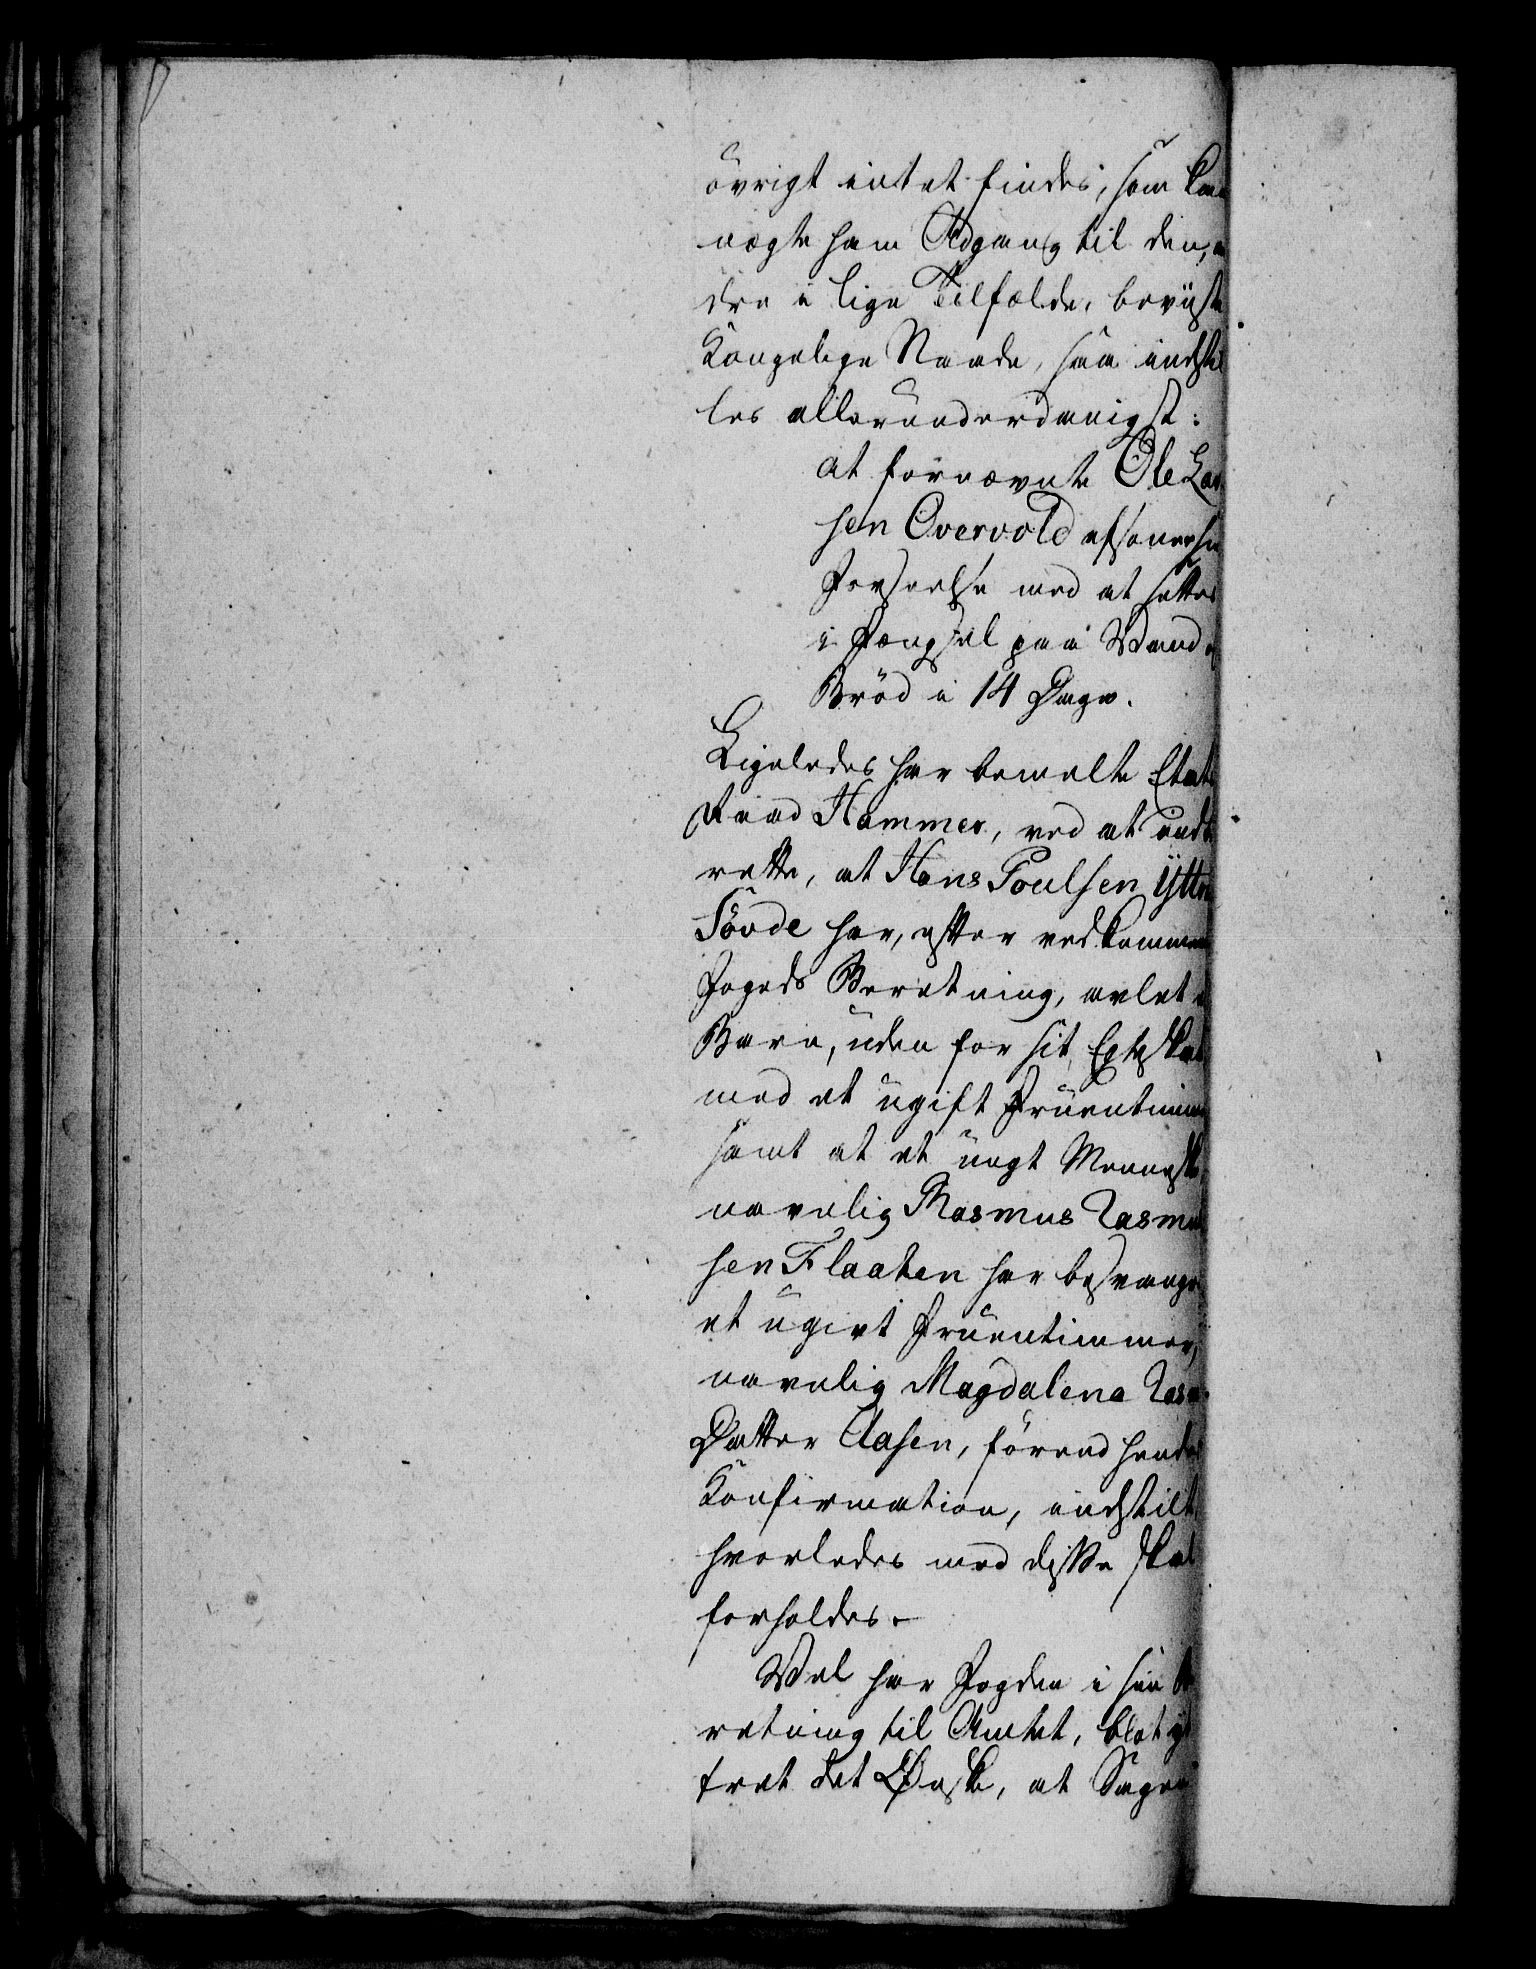 övrigt intet findes, som kan
nægte ham Adgang til den, a
dre i lige Tilfælde, beviiste
Kongelige Naade, saa indstil
les allerunderdanigst:
at fornævnte Ole Lar
sen Overvold afsoner sin
Forseelse med at sættes
i Fængsel paa Vand o
Bröd i 14 Dage.
Ligeledes har bemelte Etats
Raad Hammer, ved at indbe
rette, at Hans Poulsen Ytter
Sövde har, efter vedkommen
Fogeds Beretning, avlet e
Barn, uden for sit Egteskab
med et ugift Fruentimme
samt at et ungt Menneske
navnlig Rasmus Rasmu
sen Flaaten har besvangre
et ugivt Fruentimmer,
navnlig Magdalena Ras
Datter Aasen, förend hendes
Konfirmation, indstilt,
hvorledes med disse skal
forholdes.
Vel har Fogden i sin Be
retning til Amtet, blot yt
tret det Ønske, at Sagen